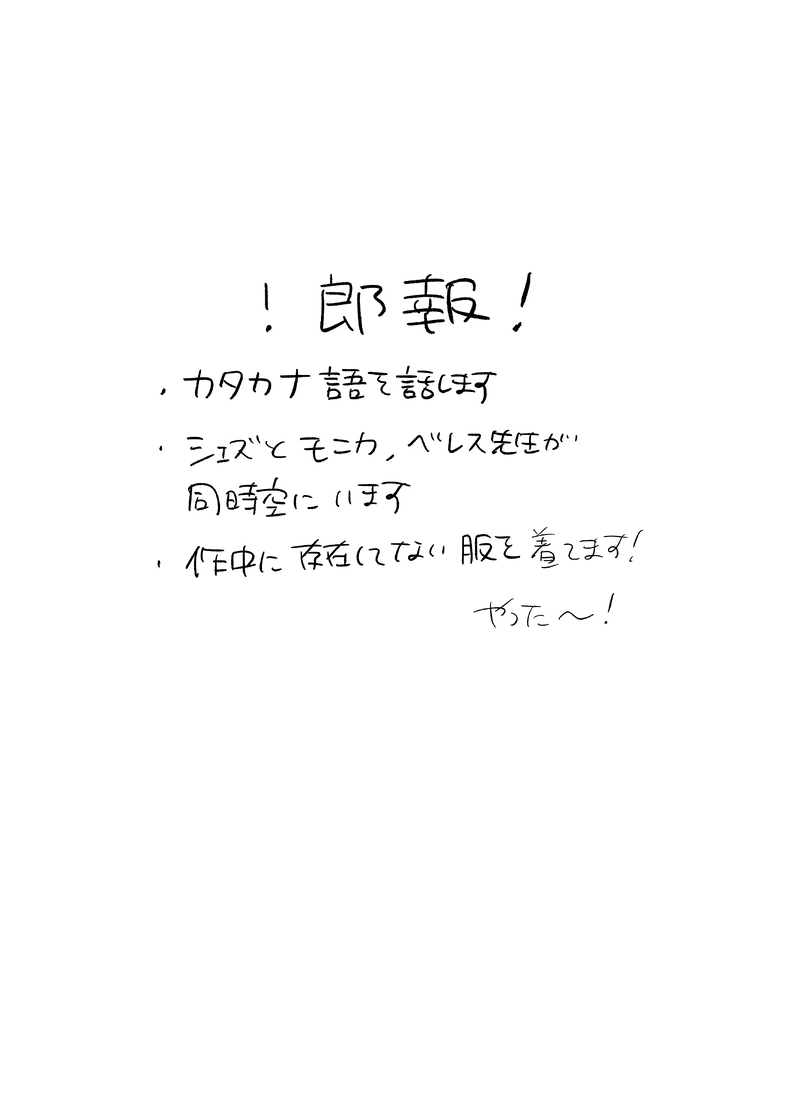 ！郎報！
・カタカナ語を話します
・シェズとモニカ,ベレス先生が
同時空にいます
・作中に存在してない服を着てます！
やった〜！